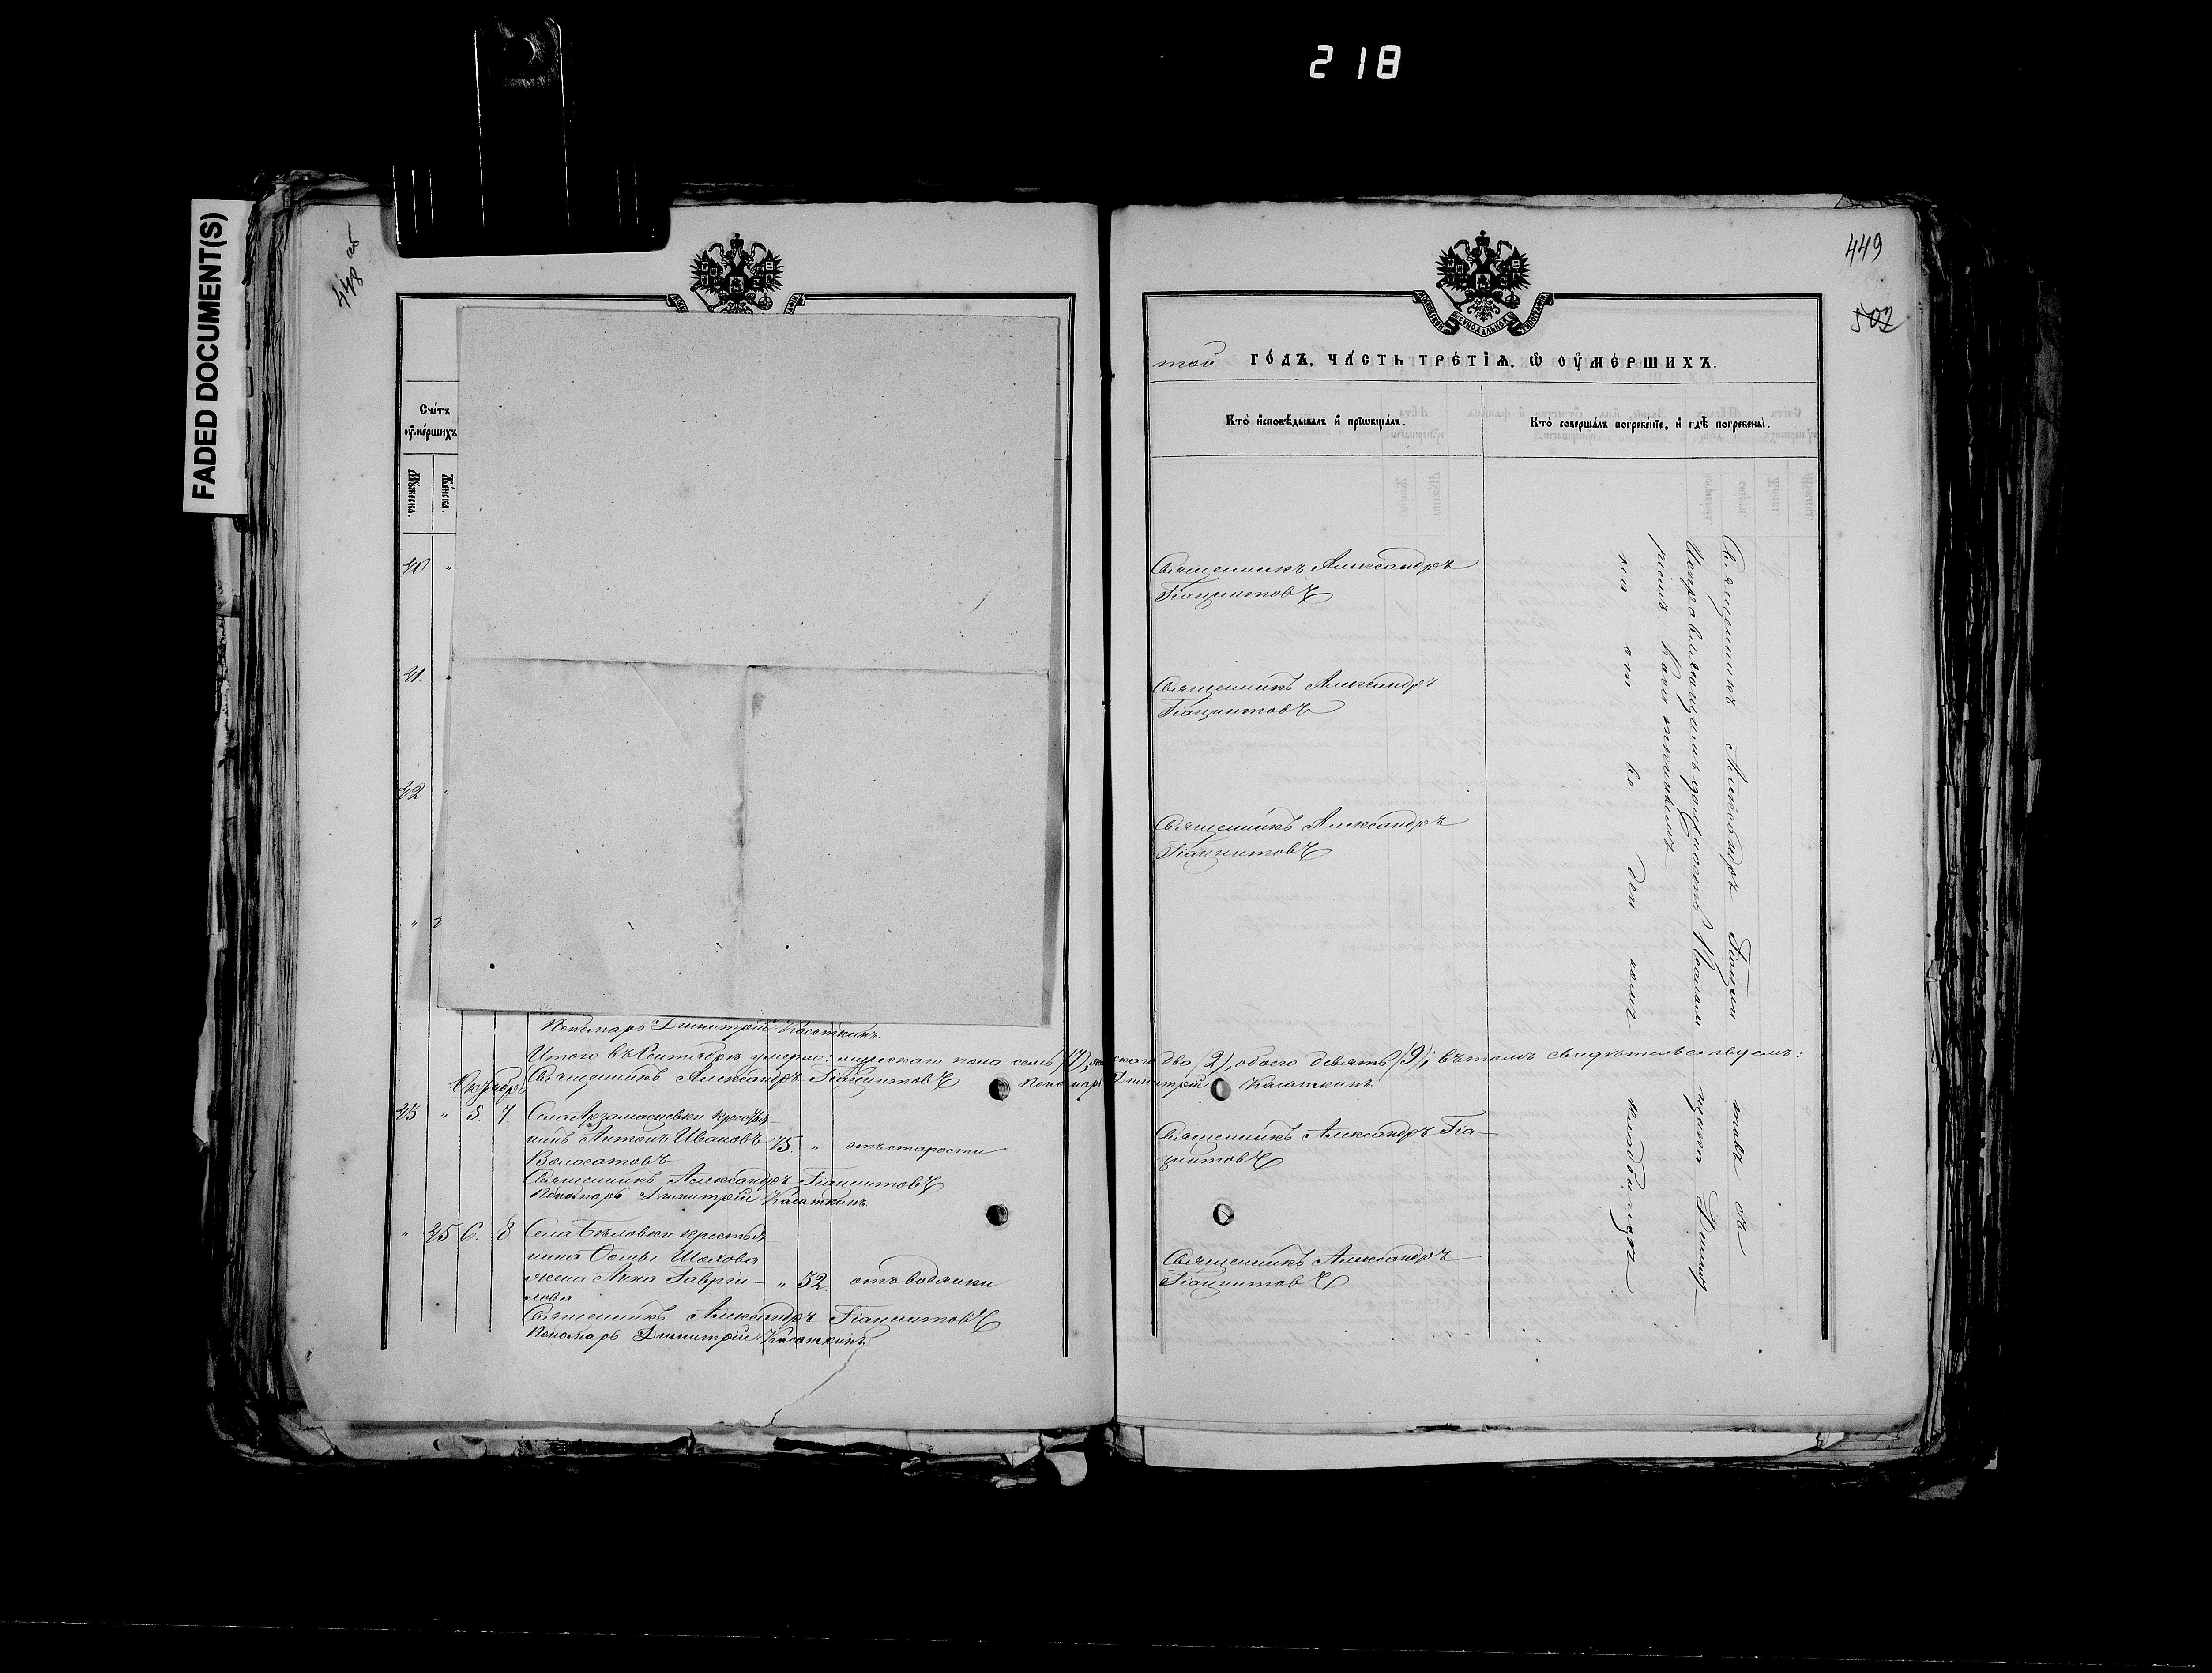 218
FADED DOCUMENT(S)
448 об
Счётъ
оумершихъ
Мужеска.
Женска.
20 "
21.
22
"
Пономарь Димитрій Касаткинъ.
Итого въ Сентябрѣ умерло: мужескаго пола семь (7), женскаго два (2), обоего девять (9); въ томъ свидѣтельствуемъ:
Священникъ Александръ Гіацинтовъ Пономарь Димитрій Касаткинъ
Октябрь
23 " 5. 7. Села Арзамасцевки кресть я-
нинъ Антонъ Ивановъ 75. " отъ старости
Волосатовъ
Священникъ Александръ Гіацинтовъ
Пономарь Димитрій Касаткинъ.
" 25 6. 8 Села Бѣловки крестья-
нина Осипа Шохова
жена Анна Гаврі и- " 32 отъ водянки
лова
Священникъ Александръ Гіацинтовъ
Пономарь Димитрій Касаткинъ
449
507
той годъ, часть третія, ѡ оумершихъ.
Кто исповѣдывалъ и пріѡбщалъ.
Кто совершалъ погребеніе, и гдѣ погребены.
Священникъ Александръ
Гіацинтовъ
Священникъ Александръ
Гіацинтовъ
Священникъ Александръ
Гіацинтовъ
Священникъ Александръ Гіа-
цинтовъ
Священникъ Александръ
Гіацинтовъ
Священникъ Александръ Гіацин товъ съ
Исправляющимъ должность Псалом щика Димит
ріемъ Касаткинымъ
на от ве ден номъ кладбищѣ